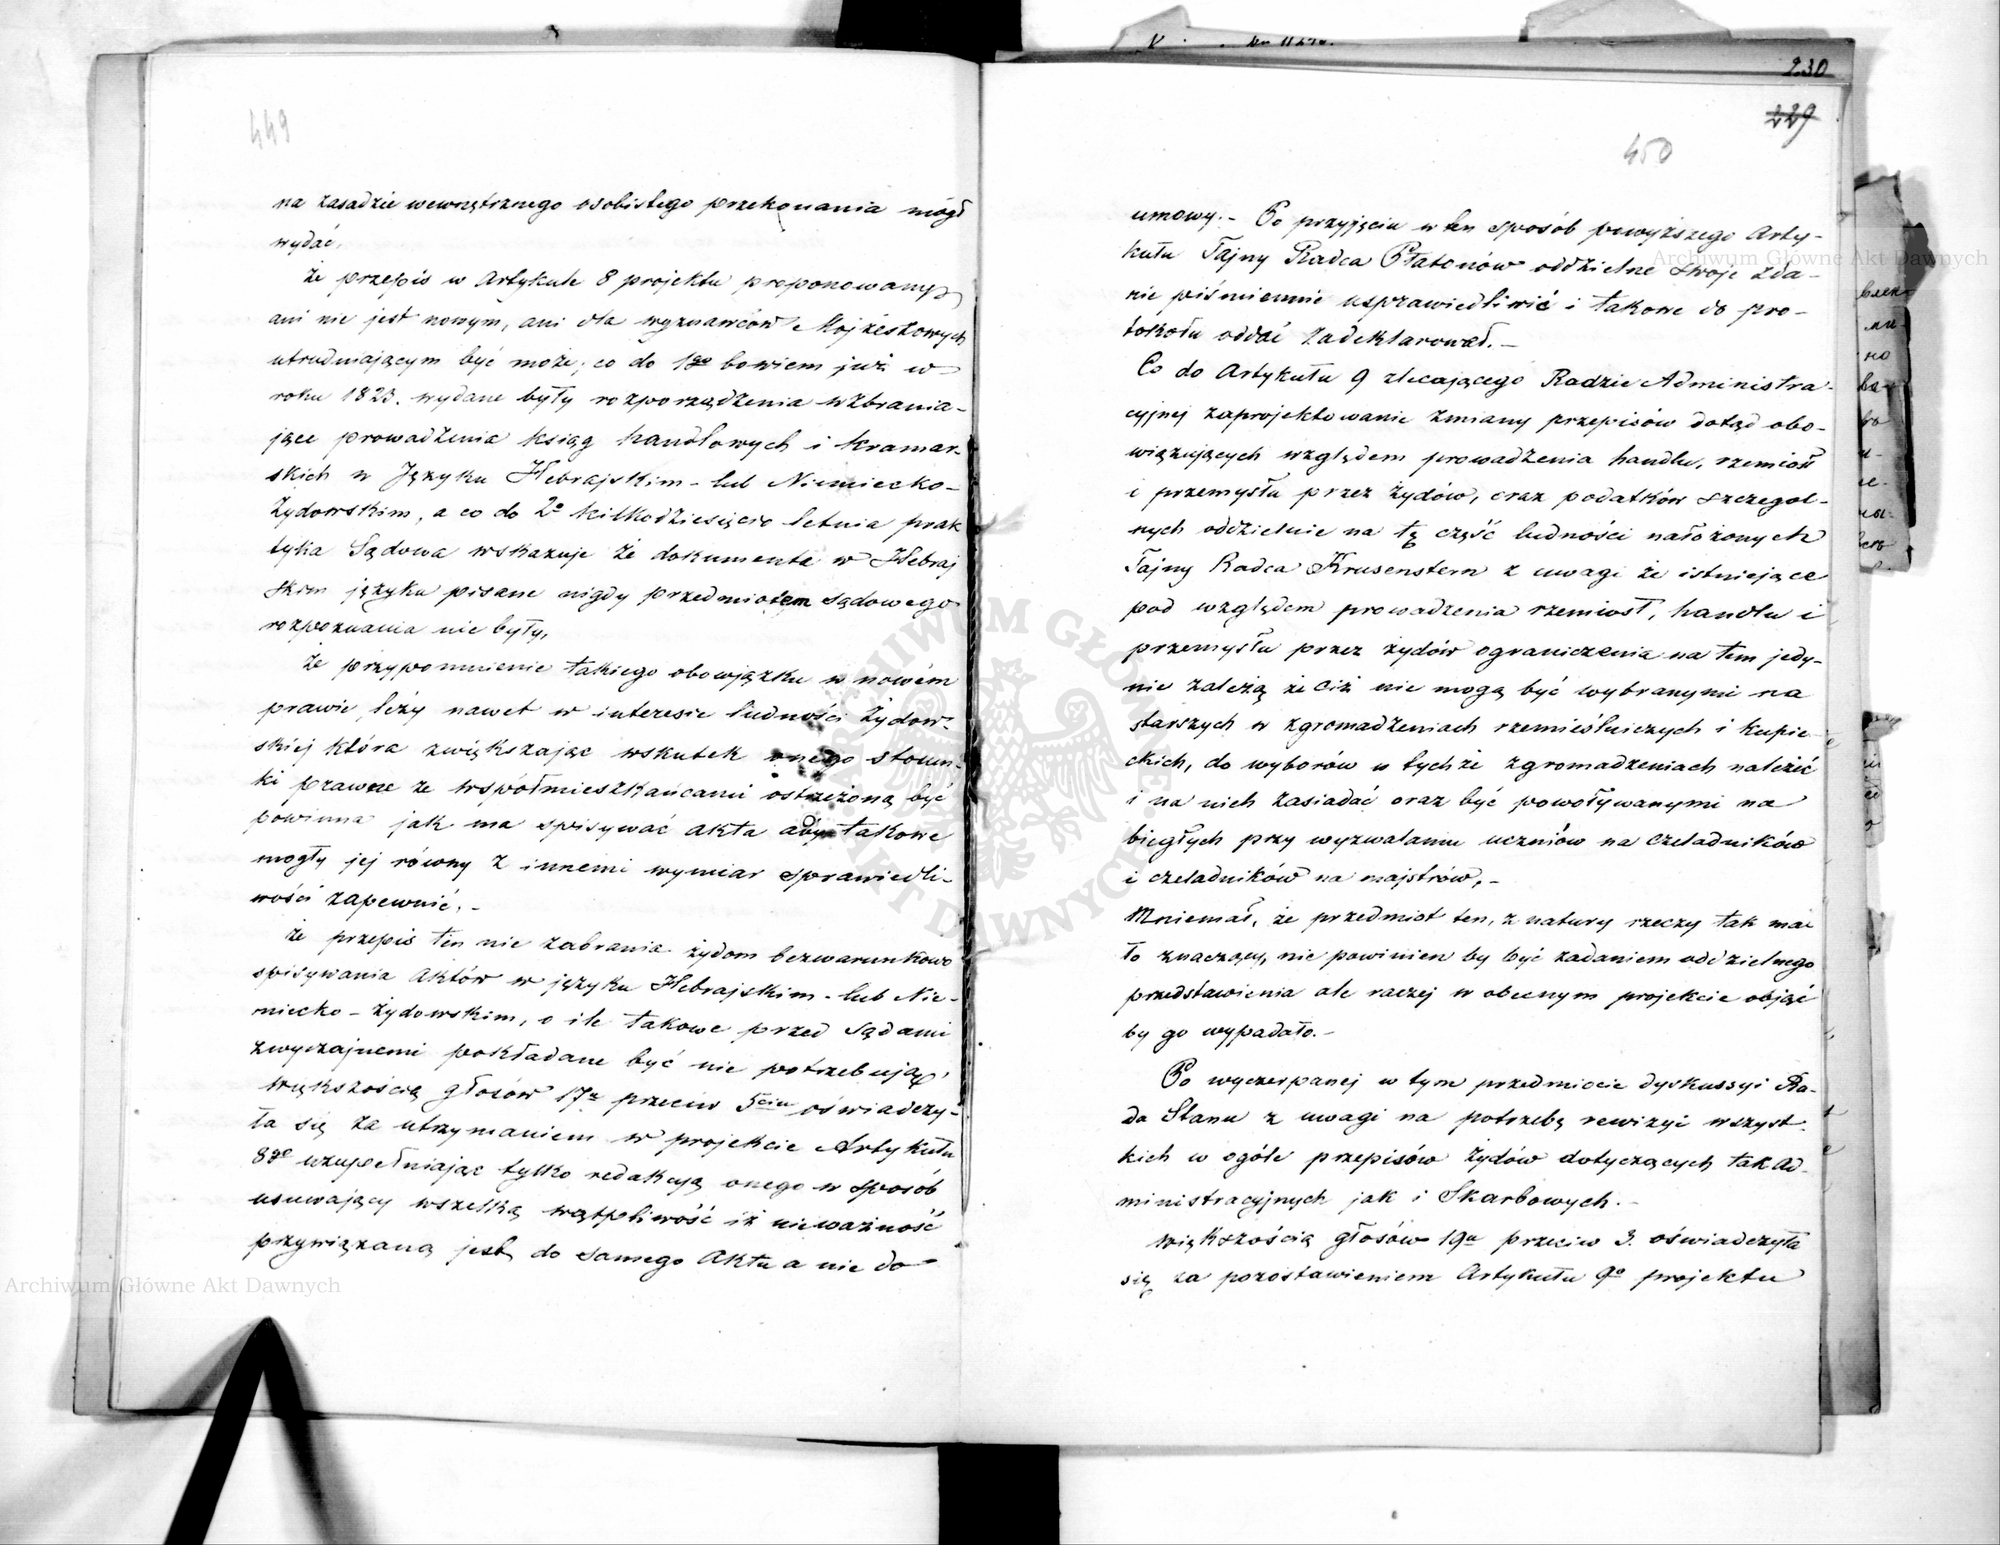 449
na zasadzie wewnętrznego osobistego przekonania mógł
wydać.
Że przepis w Artykule 8 projektu proponowany
ani nie jest nowym, ani dla wyznawców Mojżeszowych
utrudniającym być może; co do 1go bowiem już w
roku 1823. wydane były rozporządzenia wzbrania-
jące prowadzenia ksiąg handlowych i kramar-
skich w Języku Hebrajskim - lub Niemiecko-
Żydowskim, a co do 2o kilkodziesięcio letnia prak
tyka Sądowa wskazuje że dokumenta w Hebraj
skim języku pisane nigdy przedmiotem sądowego
rozpoznania nie były,
Że przypomnienie takiego obowiązku w nowém
prawie, leży nawet w interesie ludności Żydow-
skiej która zwiększając wskutek onego stosun-
ki prawne ze współmieszkańcami ostrzeżoną być
powinna jak ma spisywać akta aby takowe
mogły jej równy z innemi wymiar sprawiedli-
wości zapewnić. -
że przepis ten nie zabrania żydom bezwarunkowo
spisywania aktów w języku Hebrajskim - lub Nie-
miecko - żydowskim, o ile takowe przed Sądami
zwyczajnemi pokładane być nie potrzebują,
Większością głosów 17u przeciw 5ciu oświadczy-
ła się za utrzymaniem w projekcie Artykułu
8go uzupełniając tylko redakcyą onego w sposób
usuwający wszelką wątpliwość iż nieważność
przywiązaną jest do samego Aktu a nie do
230
229
450
umowy. - Po przyjęciu w ten sposób powyższego Arty-
kułu Tajny Radca Płatonów oddzielne swoje zda-
nie piśmiennie usprawiedliwić i takowe do pro-
tokołu oddać zadeklarował. -
Co do Artykułu 9 zlecającego Radzie Administra-
cyjnej zaprojektowanie zmiany przepisów dotąd obo-
wiązujących względem prowadzenia handlu, rzemiosł
i przemysłu przez Żydów, oraz podatków szczegól-
nych oddzielnie na tę część ludności nałożonych
Tajny Radca Krusenstern z uwagi że istniejące
pod względem prowadzenia rzemiosł, handlu i
przemysłu przez żydów ograniczenia na tem jedy-
nie zależą że Ciż nie mogą być wybranymi na
starszych w zgromadzeniach rzemieślniczych i kupie-
ckich, do wyborów w tychże zgromadzeniach należeć
i na nich zasiadać oraz być powoływanymi na
biegłych przy wyzwalaniu uczniów na czeladników
i czeladników na majstrów, -
Mniemał, że przedmiot ten, z natury rzeczy tak ma
ło znaczący, nie powinien by być zadaniem oddzielnego
przedstawienia ale raczej w obecnym projekcie objąć
by go wypadało. -
Po wyczerpanej w tym przedmiocie dyskussyi Ra-
da Stanu z uwagi na potrzebę rewizyi wszyst-
kich w ogóle przepisów Żydów dotyczących tak ad-
ministracyjnych jak i Skarbowych. -
Większością głosów 19u przeciw 3. oświadczyła
się za pozostawieniem Artykułu 9o projektu
Archiwum Główne Akt Dawnych
Archiwum Główne Akt Dawnych
ARCHIWUM GŁÓWNE AKT DAWNYCH